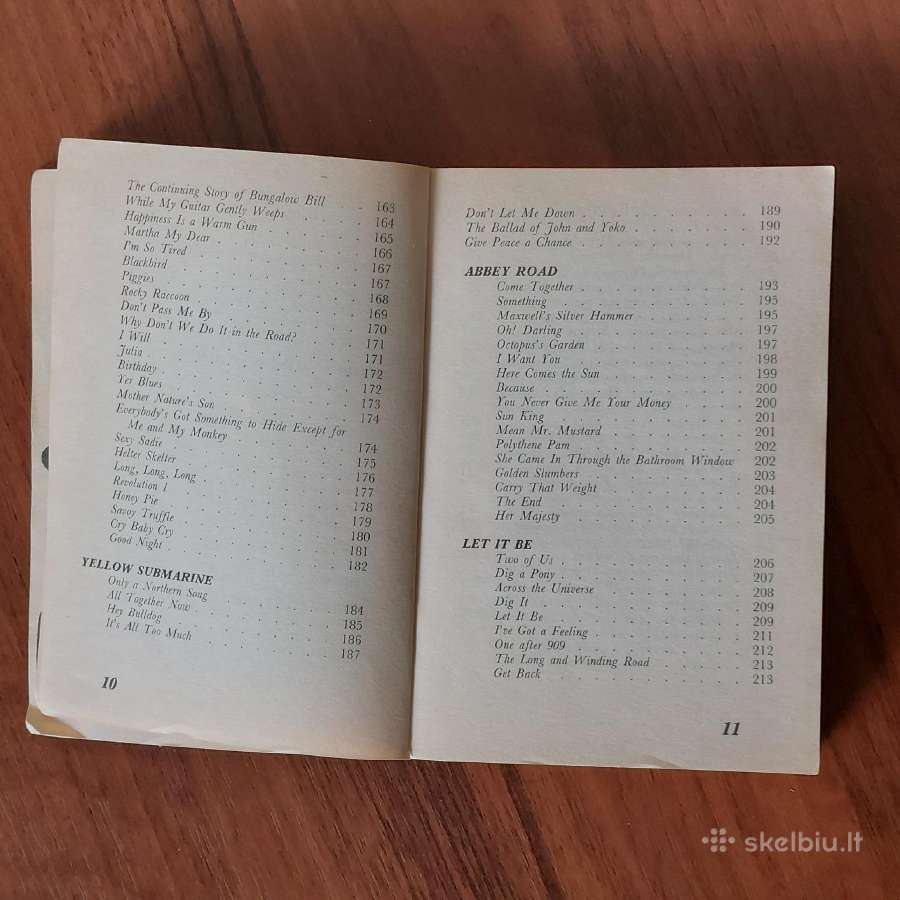 The Continuing Story of Bungalow Bill . . 163
While My Guitar Gently Weeps . . . . . 164
Happiness Is a Warm Gun . . . . . . . 165
Martha My Dear . . . . . . . . . . 166
I'm So Tired . . . . . . . . . . . 167
Blackbird . . . . . . . . . . . . 167
Piggies . . . . . . . . . . . . . 168
Rocky Raccoon . . . . . . . . . . . 169
Don't Pass Me By . . . . . . . . . . 170
Why Don't We Do It in the Road? . . . . 171
I Will . . . . . . . . . . . . . 171
Julia . . . . . . . . . . . . . . 172
Birthday . . . . . . . . . . . . . 172
Yer Blues . . . . . . . . . . . . 173
Mother Nature's Son . . . . . . . . . 174
Everybody's Got Something to Hide Except for
Me and My Monkey . . . . . . . . 174
Sexy Sadie . . . . . . . . . . . . 175
Helter Skelter . . . . . . . . . . . 176
Long, Long, Long . . . . . . . . . . 177
Revolution I . . . . . . . . . . . 178
Honey Pie . . . . . . . . . . . . 179
Savoy Truffle . . . . . . . . . . . 180
Cry Baby Cry . . . . . . . . . . . 181
Good Night . . . . . . . . . . . . 182
YELLOW SUBMARINE
Only a Northern Song . . . . . . . . 184
All Together Now . . . . . . . . . . 185
Hey Bulldog . . . . . . . . . . . . 186
It's All Too Much . . . . . . . . . . 187
10
Don't Let Me Down . . . . . . . . . . 189
The Ballad of John and Yoko . . . . . . . 190
Give Peace a Chance . . . . . . . . . . 192
ABBEY ROAD
Come Together . . . . . . . . . . . 193
Something . . . . . . . . . . . . 195
Maxwell's Silver Hammer . . . . . . . 195
Oh! Darling . . . . . . . . . . . 197
Octopus's Garden . . . . . . . . . . 197
I Want You . . . . . . . . . . . 198
Here Comes the Sun . . . . . . . . . 199
Because . . . . . . . . . . . . . 200
You Never Give Me Your Money . . . . . 200
Sun King . . . . . . . . . . . . 201
Mean Mr. Mustard . . . . . . . . . 201
Polythene Pam . . . . . . . . . . . 202
She Came In Through the Bathroom Window 202
Golden Slumbers . . . . . . . . . . 203
Carry That Weight . . . . . . . . . 204
The End . . . . . . . . . . . . . 204
Her Majesty . . . . . . . . . . . 205
LET IT BE
Two of Us . . . . . . . . . . . . 206
Dig a Pony . . . . . . . . . . . . 207
Across the Universe . . . . . . . . . 208
Dig It . . . . . . . . . . . . . 209
Let It Be . . . . . . . . . . . . 209
I've Got a Feeling . . . . . . . . . . 211
One after 909 . . . . . . . . . . . 212
The Long and Winding Road . . . . . . 213
Get Back . . . . . . . . . . . . . 213
11
skelbiu.lt